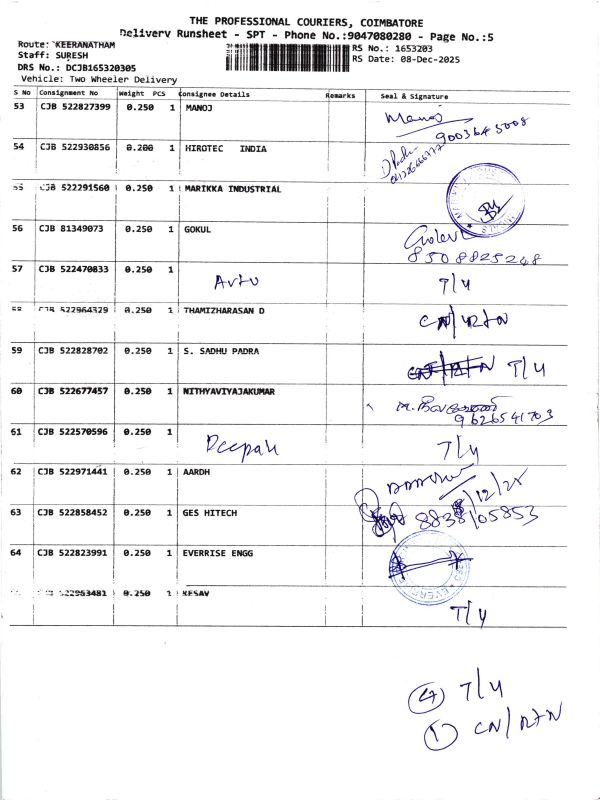 THE PROFESSIONAL COURIERS, COIMBATORE
Delivery Runsheet - SPT - Phone No.:9047080280 - Page No.:5
Route: KEERANATHAM
Staff: SURESH
DRS No.: DCJB165320305
Vehicle: Two Wheeler Delivery
RS No.: 1653203
RS Date: 08-Dec-2025
S No Consignment No Weight PCS Consignee Details Remarks Seal & Signature
53 CJB 522827399 0.250 1 MANOJ Manoj 9003645008
54 CJB 522930856 0.200 1 HIROTEC INDIA
55 CJB 522291560 0.250 1 MARIKKA INDUSTRIAL
56 CJB 81349073 0.250 1 GOKUL
8508825248
57 CJB 522470833 0.250 1 Auto T/4
58 CJB 522964329 0.250 1 THAMIZHARASAN D CN/RTN
59 CJB 522828702 0.250 1 S. SADHU PADRA CN/RTN T/4
60 CJB 522677457 0.250 1 NITHYAVIYAJAKUMAR
9626541703
61 CJB 522570596 0.250 1 Deepak T/4
62 CJB 522971441 0.250 1 AARDH
63 CJB 522858452 0.250 1 GES HITECH 8838105853
64 CJB 522823991 0.250 1 EVERRISE ENGG
CJB 522963481 0.250 1 KESAV T/4
4 T/4
1 CN/RTN